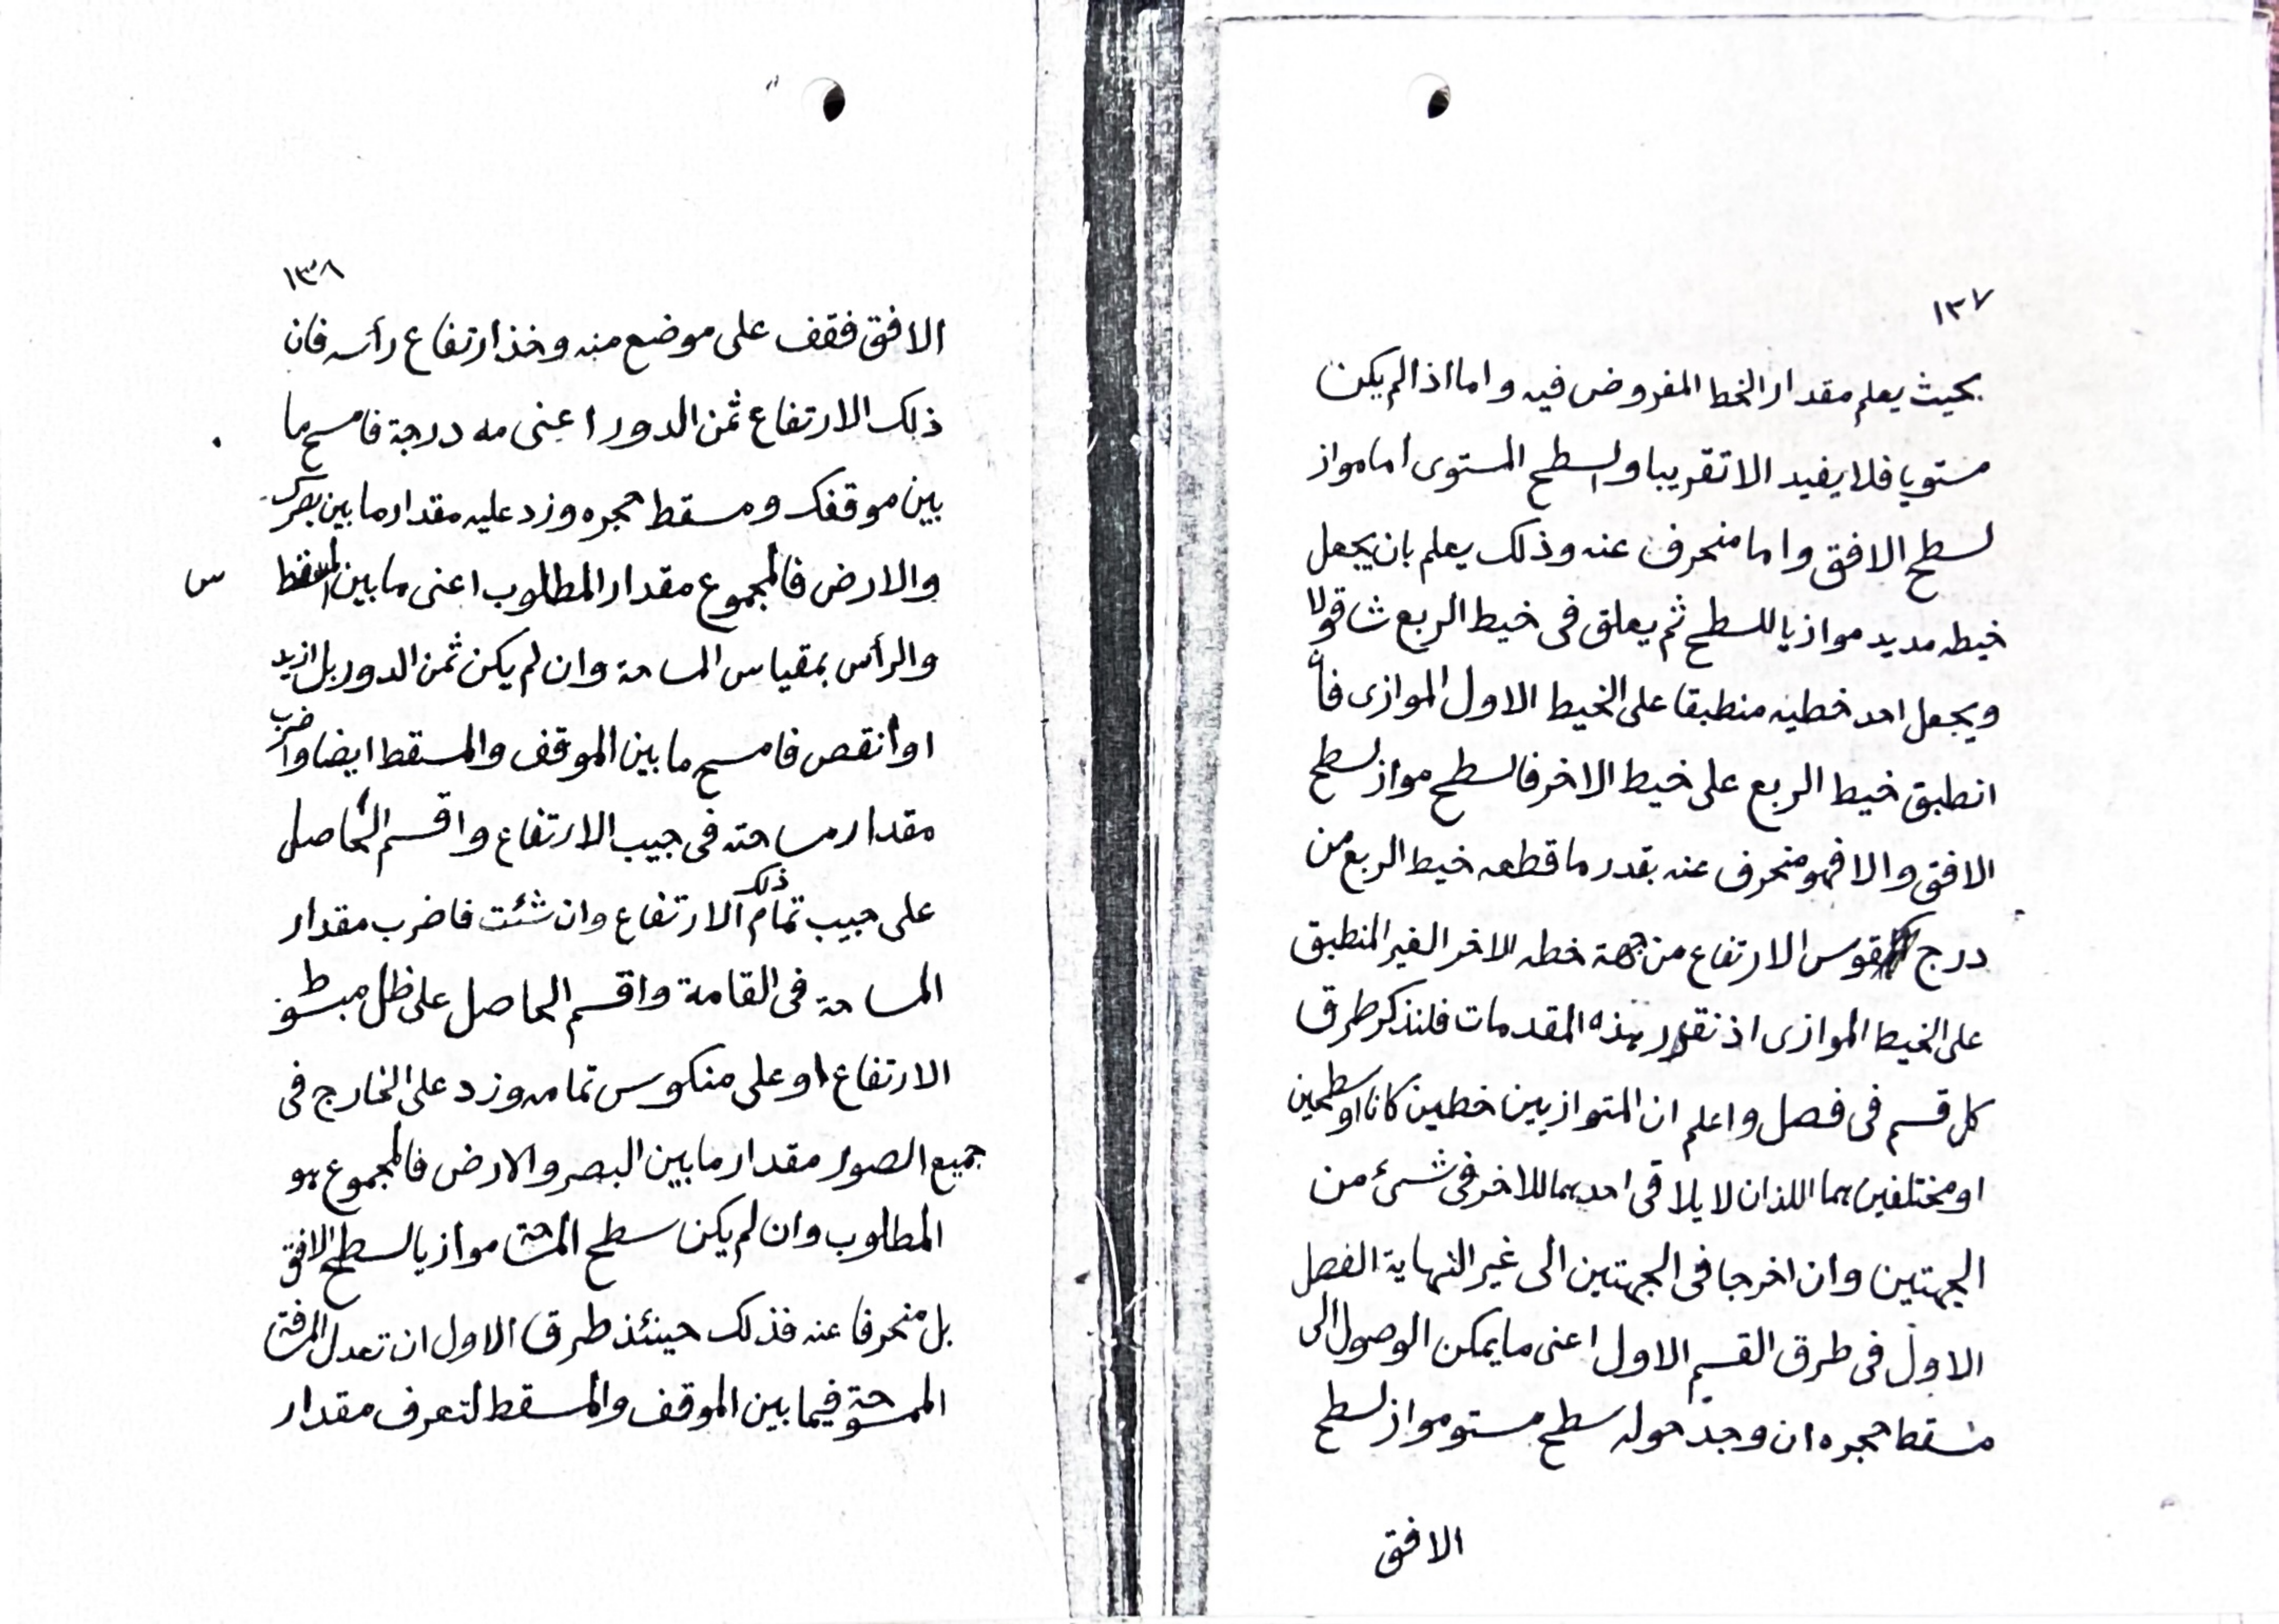 ١٣٧
بحيث يعلم مقدار الخط المفروض فيه واما اذا لم يكن
مستويا فلا يفيد الا تقريبا والسطح المستوى اما مواز
لسطح الافق واما منحرف عنه وذلك يعلم بان يجعل
خيطه مديد موازيا للسطح ثم يعلق فى خيط الربع شاقولا
ويجعل احد خطيه منطبقا على الخيط الاول الموازى فأ
انطبق خيط الربع على خيط الاخر فالسطح مواز لسطح
الافق والا فهو منحرف عنه بقدر ما قطعه خيط الربع من
درج قوس الارتفاع من جهة خطه الاخر الغير المنطبق
على الخيط الموازى اذ تقرر هذه المقدمات فلنذكر طرق
كل قسم فى فصل واعلم ان المتوازيين خطين كانا او سطحين
او مختلفين هما اللذان لا يلاقى احدهما للاخر فى شئ من
الجهتين وان اخرجا فى الجهتين الى غير النهاية الفصل
الاول فى طرق القسم الاول اعنى ما يمكن الوصول الى
مسقط حجره ان وجد حوله سطح مستو مواز لسطح
الافق
١٣٨
الافق فقف على موضع منه وخذ ارتفاع رأسه فان
ذلك الارتفاع ثمن الدور اعنى مه درجة فامسح ما
بين موقفك ومسقط حجره وزد عليه مقدار ما بين بصرك
والارض فالمجموع مقدار المطلوب اعنى ما بين المسقط
س
والرأس بمقياس المساحة وان لم يكن ثمن الدور بل ازيد
او أنقص فامسح ما بين الموقف والمسقط ايضا واضرب
مقدار مساحته فى جيب الارتفاع واقسم الحاصل
على جيب تمام ذلك الارتفاع وان شئت فاضرب مقدار
المساحة فى القامة واقسم الحاصل على ظل مبسوط
الارتفاع او على منكوس تمامه وزد على الخارج فى
جميع الصور مقدار ما بين البصر والارض فالمجموع هو
المطلوب وان لم يكن سطح المساحة موازيا لسطح الافق
بل منحرفا عنه فذلك حينئذ طرق الاول ان تعدل
الممسوحة فيما بين الموقف والمسقط لتعرف مقدار